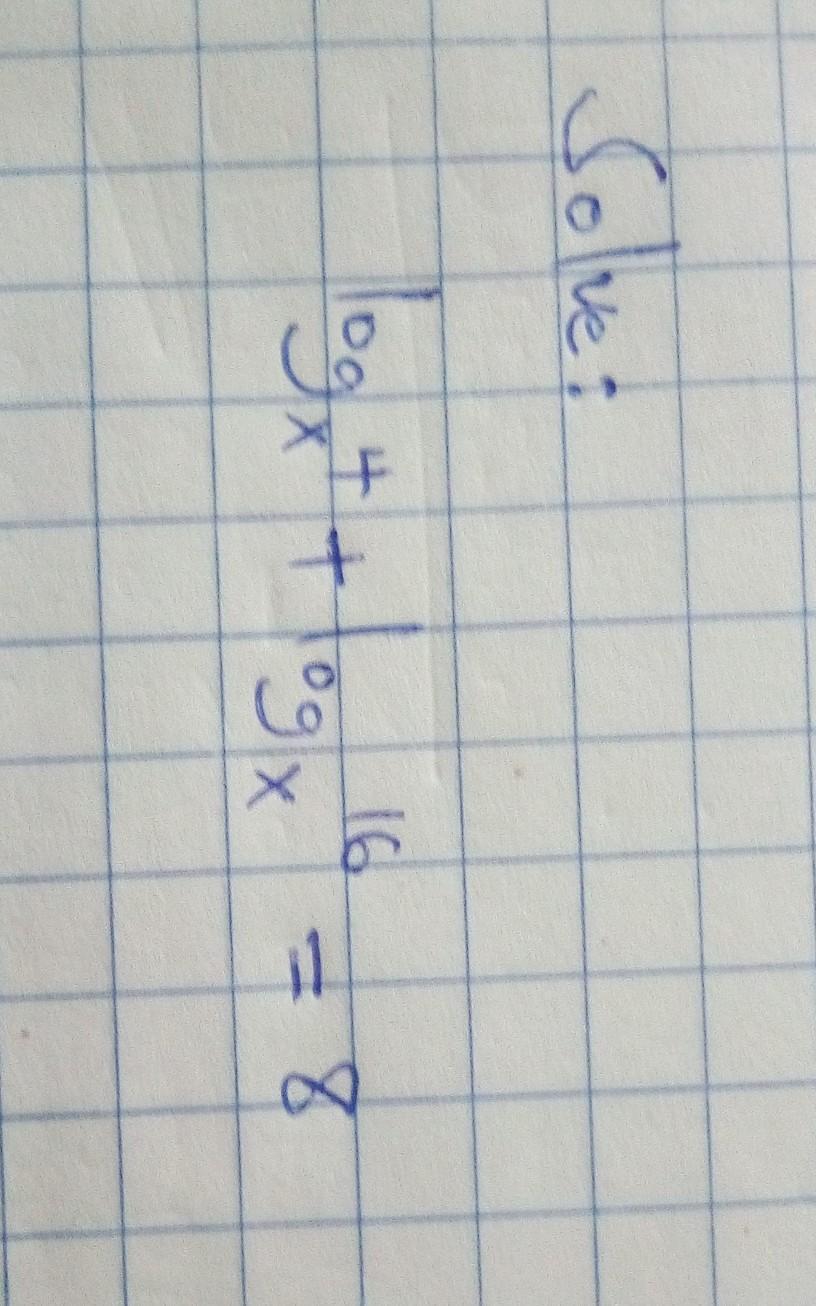 Solve:
logₓ4 + logₓ16 = 8